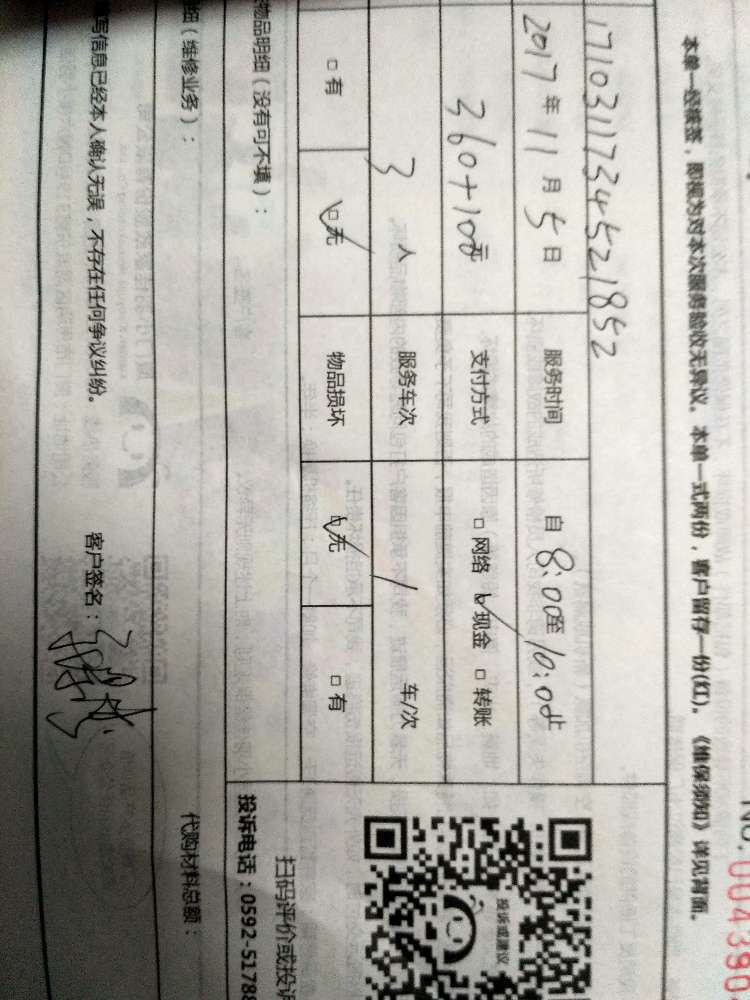 No.004390
本单一经核签，即视为对本次服务验收无异议。本单一式两份，客户留存一份(红)。《维保须知》详见背面。
1710311734521852
2017年11月5日 服务时间 自8:00至10:00止
360+10元 支付方式 □网络 ☑现金 □转账
3人 服务车次 1 车/次
□有 ☑无 物品损坏 ☑无 □有
物品明细（没有可不填）：
投诉或建议
扫码评价或投诉
投诉电话：0592-5178
细（维修业务）： 代购材料总额：
写信息已经本人确认无误，不存在任何争议纠纷。 客户签名：